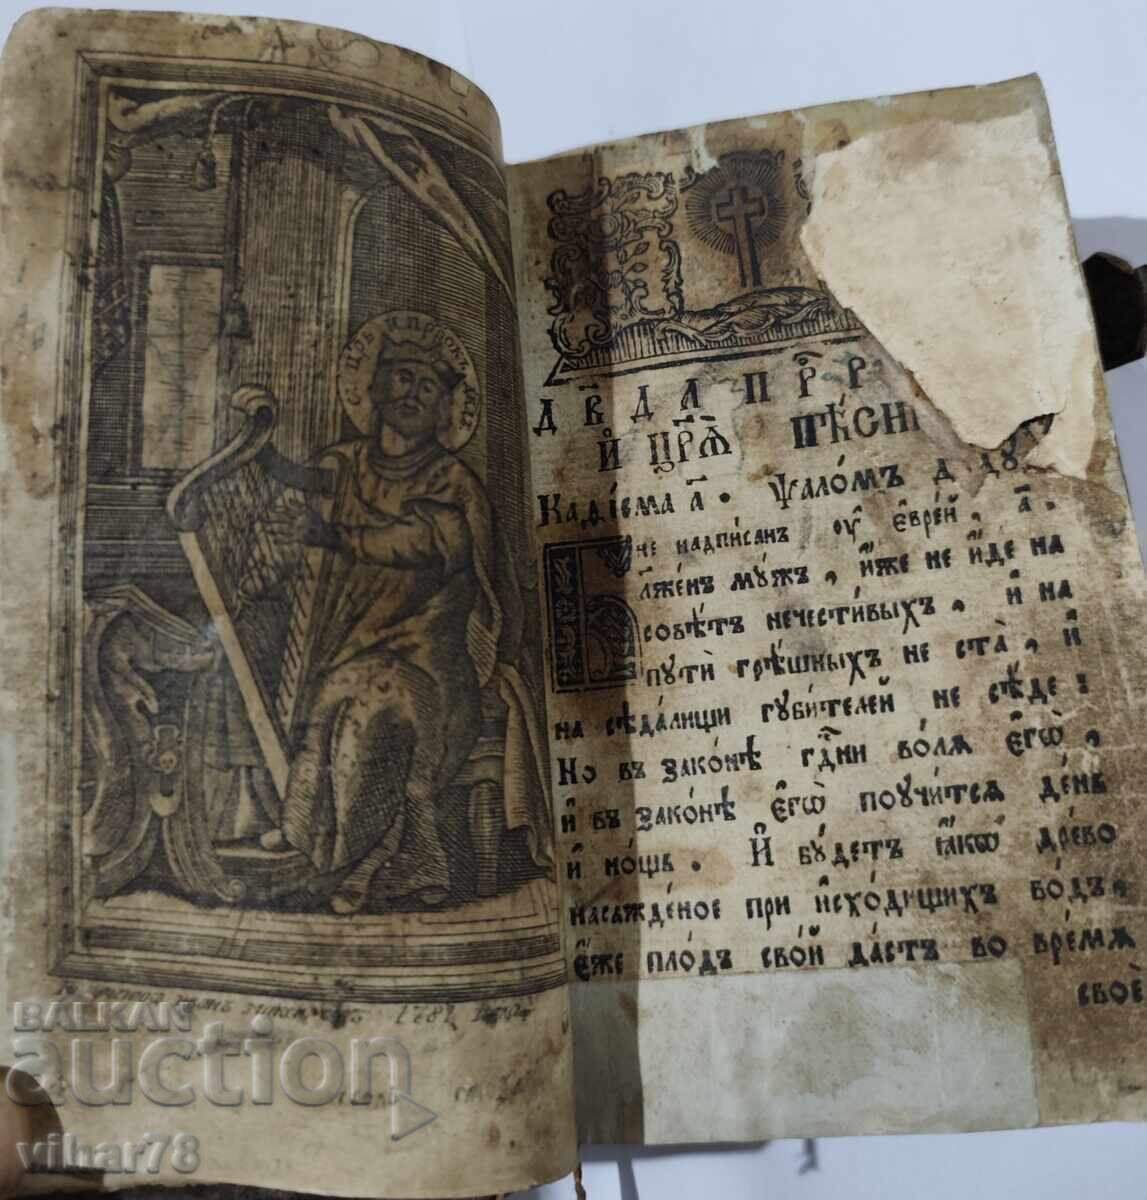 С. ЦРЬ И ПРОРОКЪ
1782
Дв҃да прр
И҆ Цр҃ѧ Пѣсни
Каѳі́сма а҃ . Ѱало́мъ Д
не надписанъ ᲂу҆ Є҆врє́й , а҃ .
Бл҃же́нъ мꙋ́жъ , и҆́же не и҆́де на
совѣ́тъ нечести́выхъ , и҆ на
пути̑ грѣ́шныхъ не ста̀ , и҆
на сѣда́лищи губи́телей не сѣ́де :
Но въ зако́нѣ гд҇ни во́лѧ є҆гѡ̀ ,
и҆ въ зако́нѣ є҆гѡ̀ поучи́тсѧ де́нь
и҆ но́щь . И҆ бу́детъ ꙗ҆́кѡ дре́во
насажде́ное при и҆сходѧ́щихъ во́дъ ,
є҆́же пло́дъ сво́й да́стъ во вре́мѧ
своѐ
BALKAN
auction
vihar78